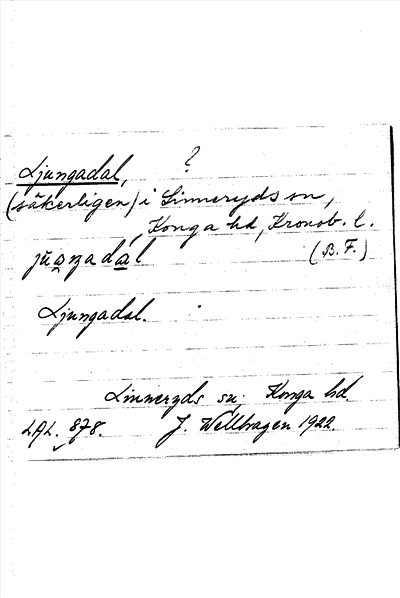 ?
Ljungadal,
(säkerligen) i Linneryds sn,
Konga hd, Kronob. l.
(B. F.)
Ljungadal.
Linneryds sn, Konga hd.
LAL. 878. J. Wellhagen 1922.